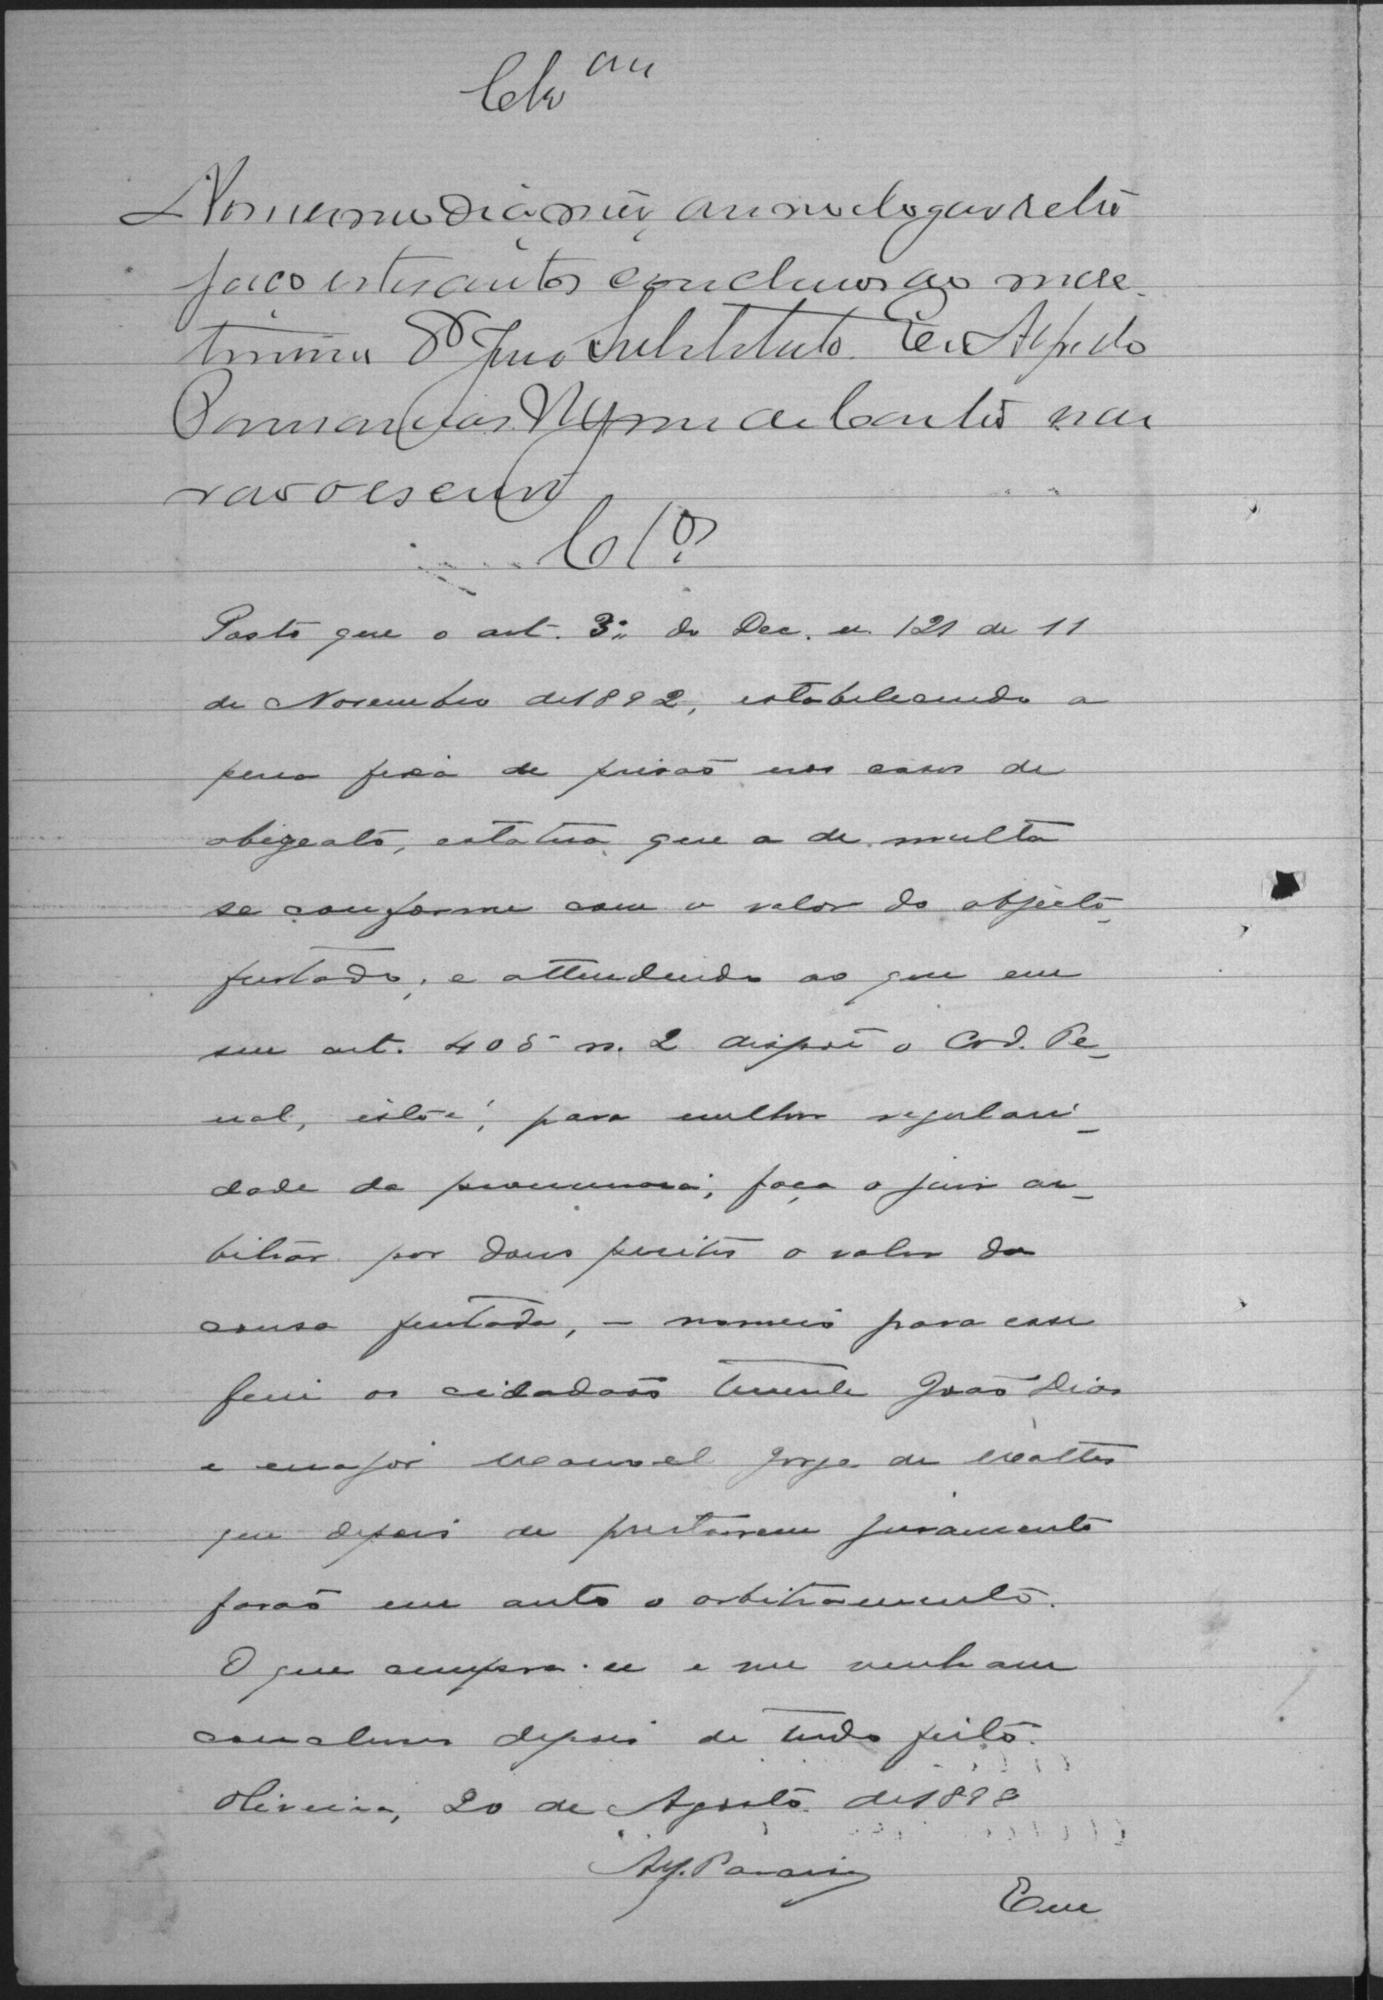 Clz am
No mesmo dia, mez, anno e logar retro
faço estes autos conclusos ao mere
tissimo Dr Juiz Substituto. Eu Alfredo
de Castro
vao o escrevi
Clos
Posto que o art. 3º do Dec. n. 121 de 11
de Novembro de 1892, estabelecendo a
pena fixa de prisão nos casos de
abigeato, estatua que a de multa
se conforme com o valor do objecto
furtado; e attendendo ao que em
seu art. 405 n. 2 dispõe o Cod. Pe-
nal, isto é, para melhor regulari-
dade da pronuncia, faça o juiz ar-
bitrar por dous peritos o valor da
cousa furtada, - nomeio para esse
fim os cidadãos tenente João Dias
e major Manoel Jorge de Mattos
que depois de prestarem juramento
farão em auto o arbitramento.
O que cumpra-se e me venham
conclusos depois de tudo feito.
Oliveira, 20 de Agosto de 1893
Em